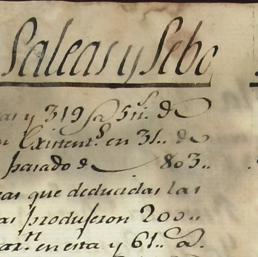 Saleas y Sebo
as y 319 @ 5 ll.s de
n Existent.s en 31.. de
pasado de 803..
eas que deducidas las
as produjeron 200..
en esta y 61.. @.